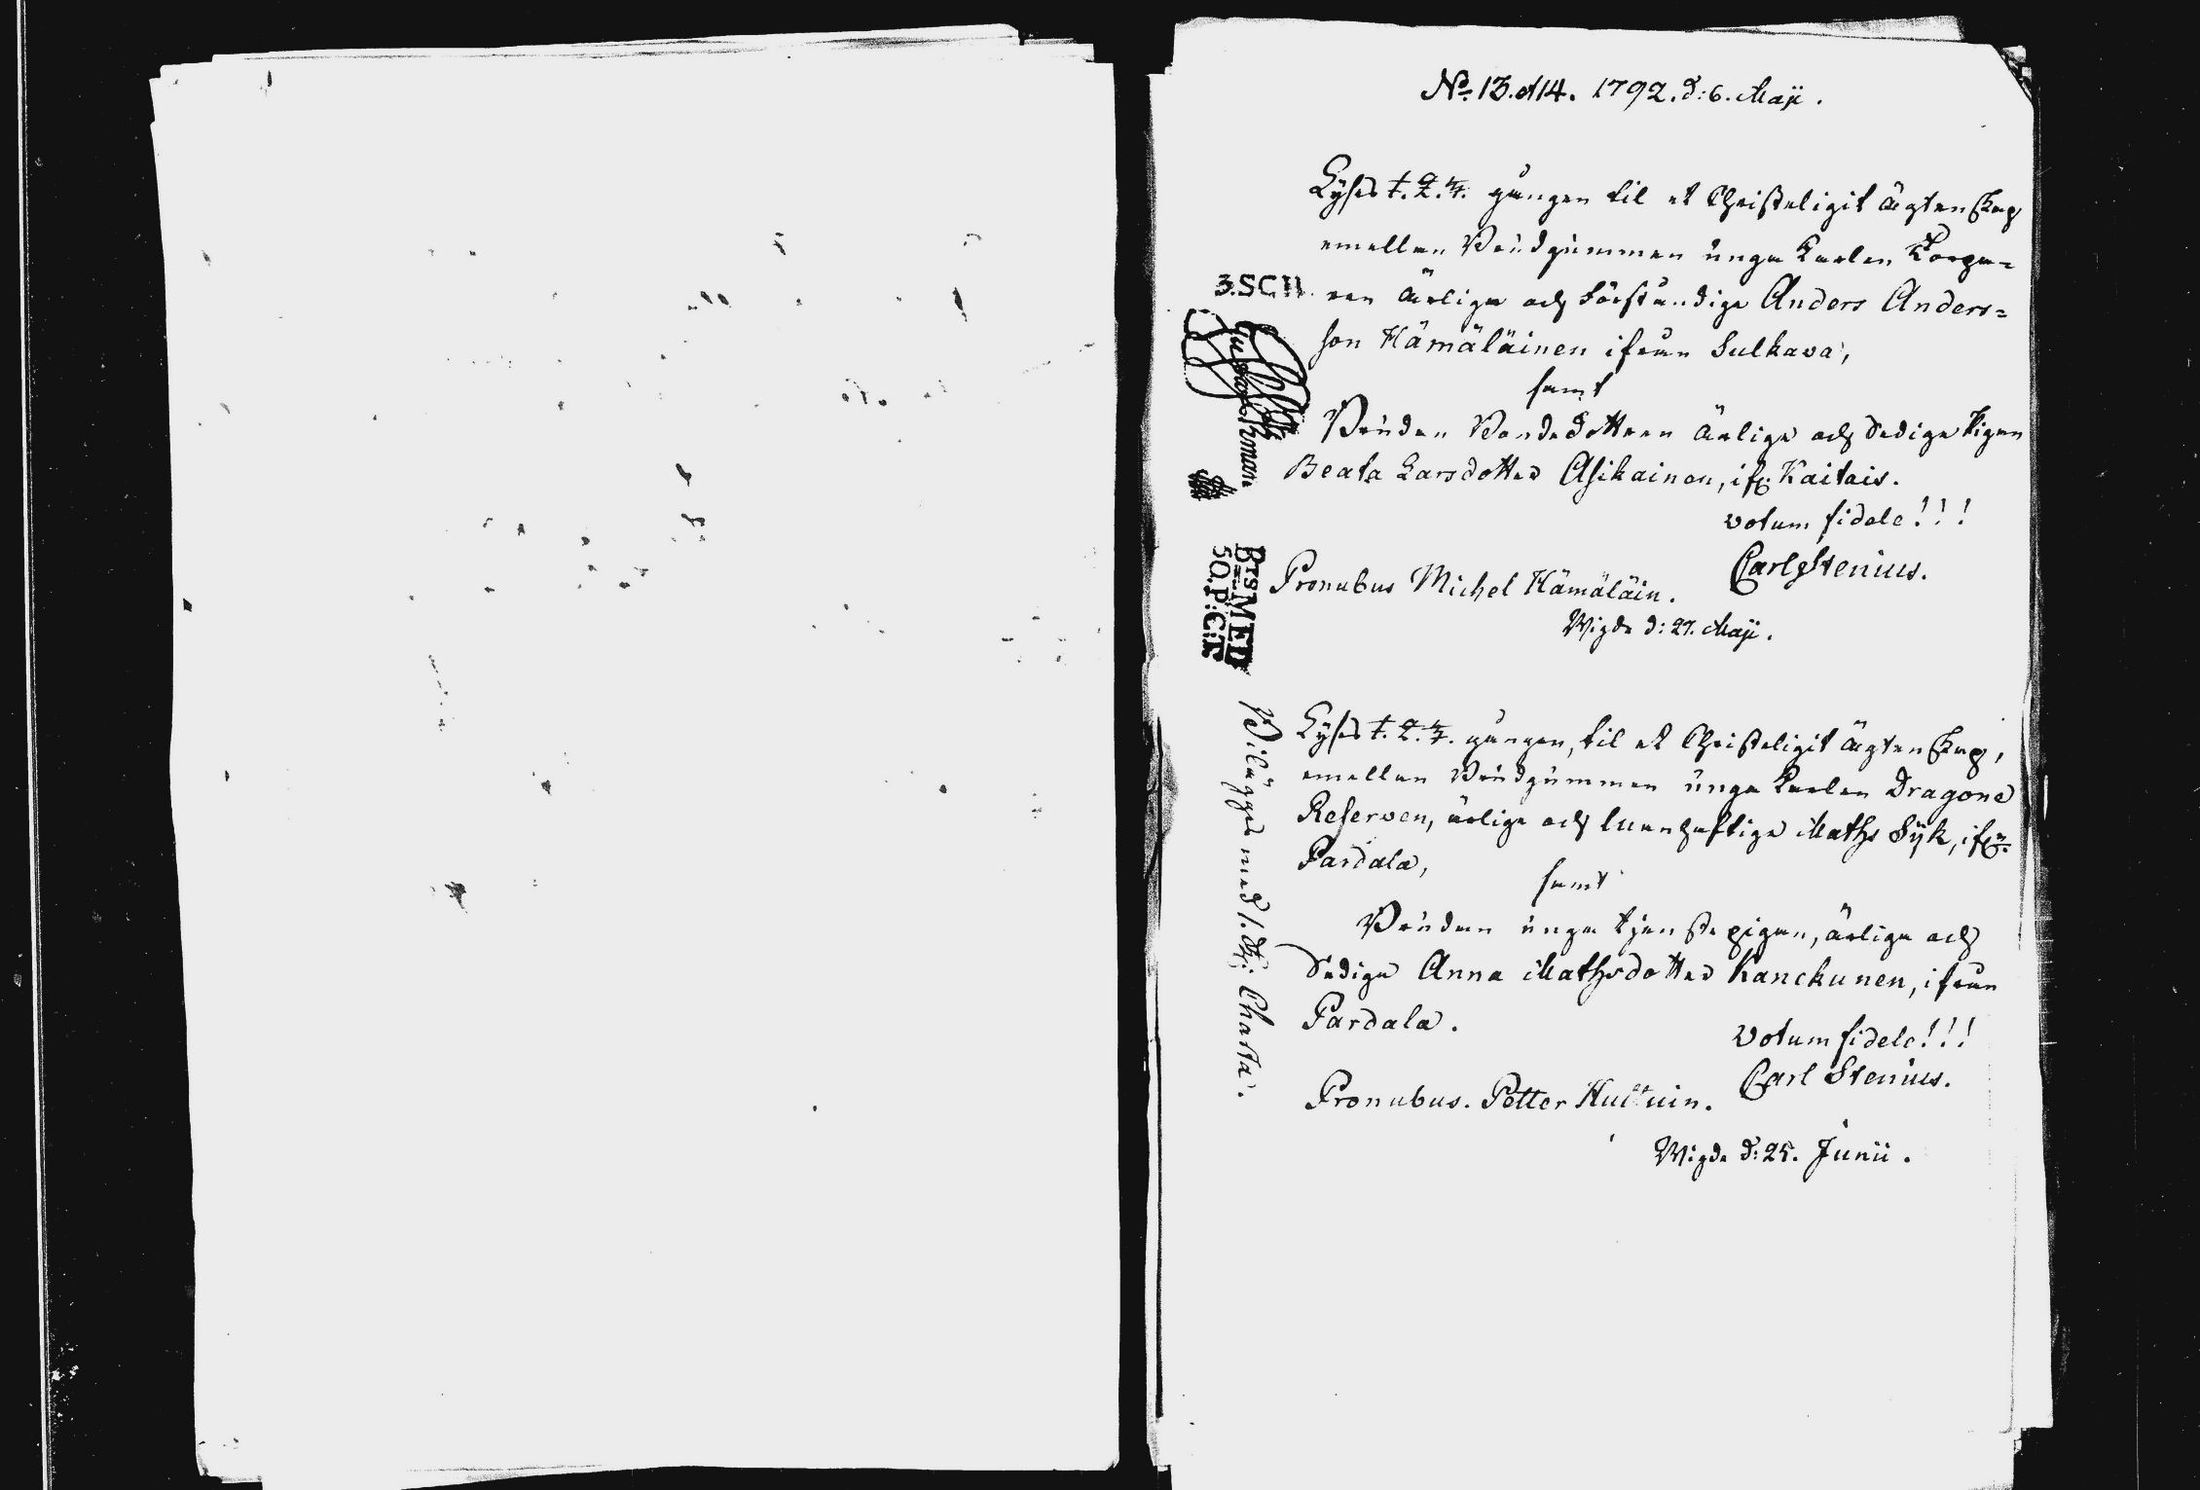 No. 13. et 14. 1792. d: 6. Maji.
Lyses 1. 2. 3. gången til et Christeligit ägtenskap
emellan Brudgummen unga Karlen Korpa=
ren ärlige och förståndige Anders Anders=
son Hämäläinen ifrån Sulkava,
samt
Bruden Bondedottren ärlige och Sediga Pigan
Beata Larsdotter Asikainen, ifr. Kaitais.
votum fidele!!!
Carl Stenius.
Pronubus Michel Hämäläin.
Wigde d: 27. Maji.
Lyses 1. 2. 3. gången, til et Christeligit ägtenskap,
emellan Brudgummen unga Karlen Dragone
Reserven, ärlige och Manhaftige Maths Syk, ifrn.
Pardala,
samt
Bruden unga tjenste pigan, ärliga och
Sediga Anna Mathsdotter Kanckunen, ifrån
Pardala.
votum fidele!!!
Carl Stenius.
Pronubus. Petter
Wigde d: 25. Junii.
3.SCH.
BTSMED
50.P:C:T
Bilägges med 1. Charta.